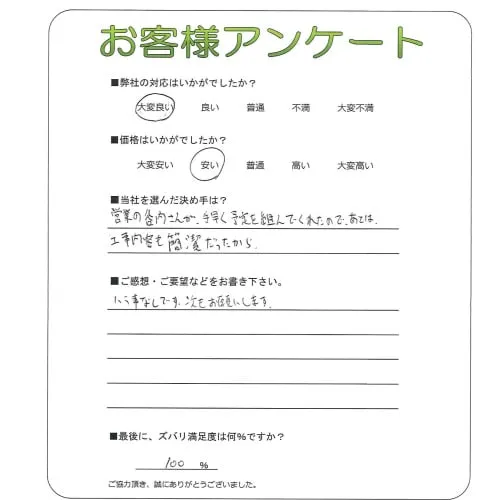 お客様アンケート
■弊社の対応はいかがでしたか？
大変良い 良い 普通 不満 大変不満
■価格はいかがでしたか？
大変安い 安い 普通 高い 大変高い
■当社を選んだ決め手は？
営業の さんが、手早く予定を組んでくれたので、あとは、
工事内容も簡潔だったから
■ご感想・ご要望などをお書き下さい。
いう事なしです。次もお願いします。
■最後に、ズバリ満足度は何％ですか？
100 ％
ご協力頂き、誠にありがとうございました。